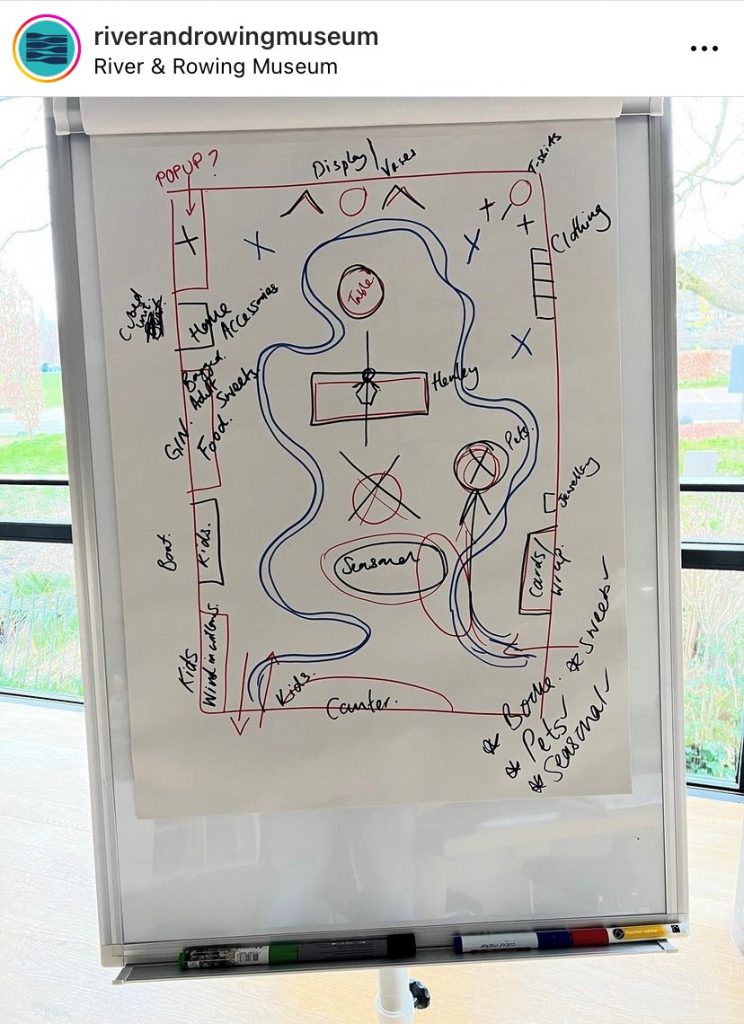 riverandrowingmuseum
River & Rowing Museum
POPUP?
Display/
Vases
T-shirts
Clothing
Table
Home
Accessories
Bagged
Adult
Sweets
GIN.
Food.
Henley
Pets.
Jewellery
Boat.
Kids.
Seasonal
Cards/
Wrap.
Kids
Wind in willows.
Kids.
Counter.
* Sweets
* Pets
* Seasonal